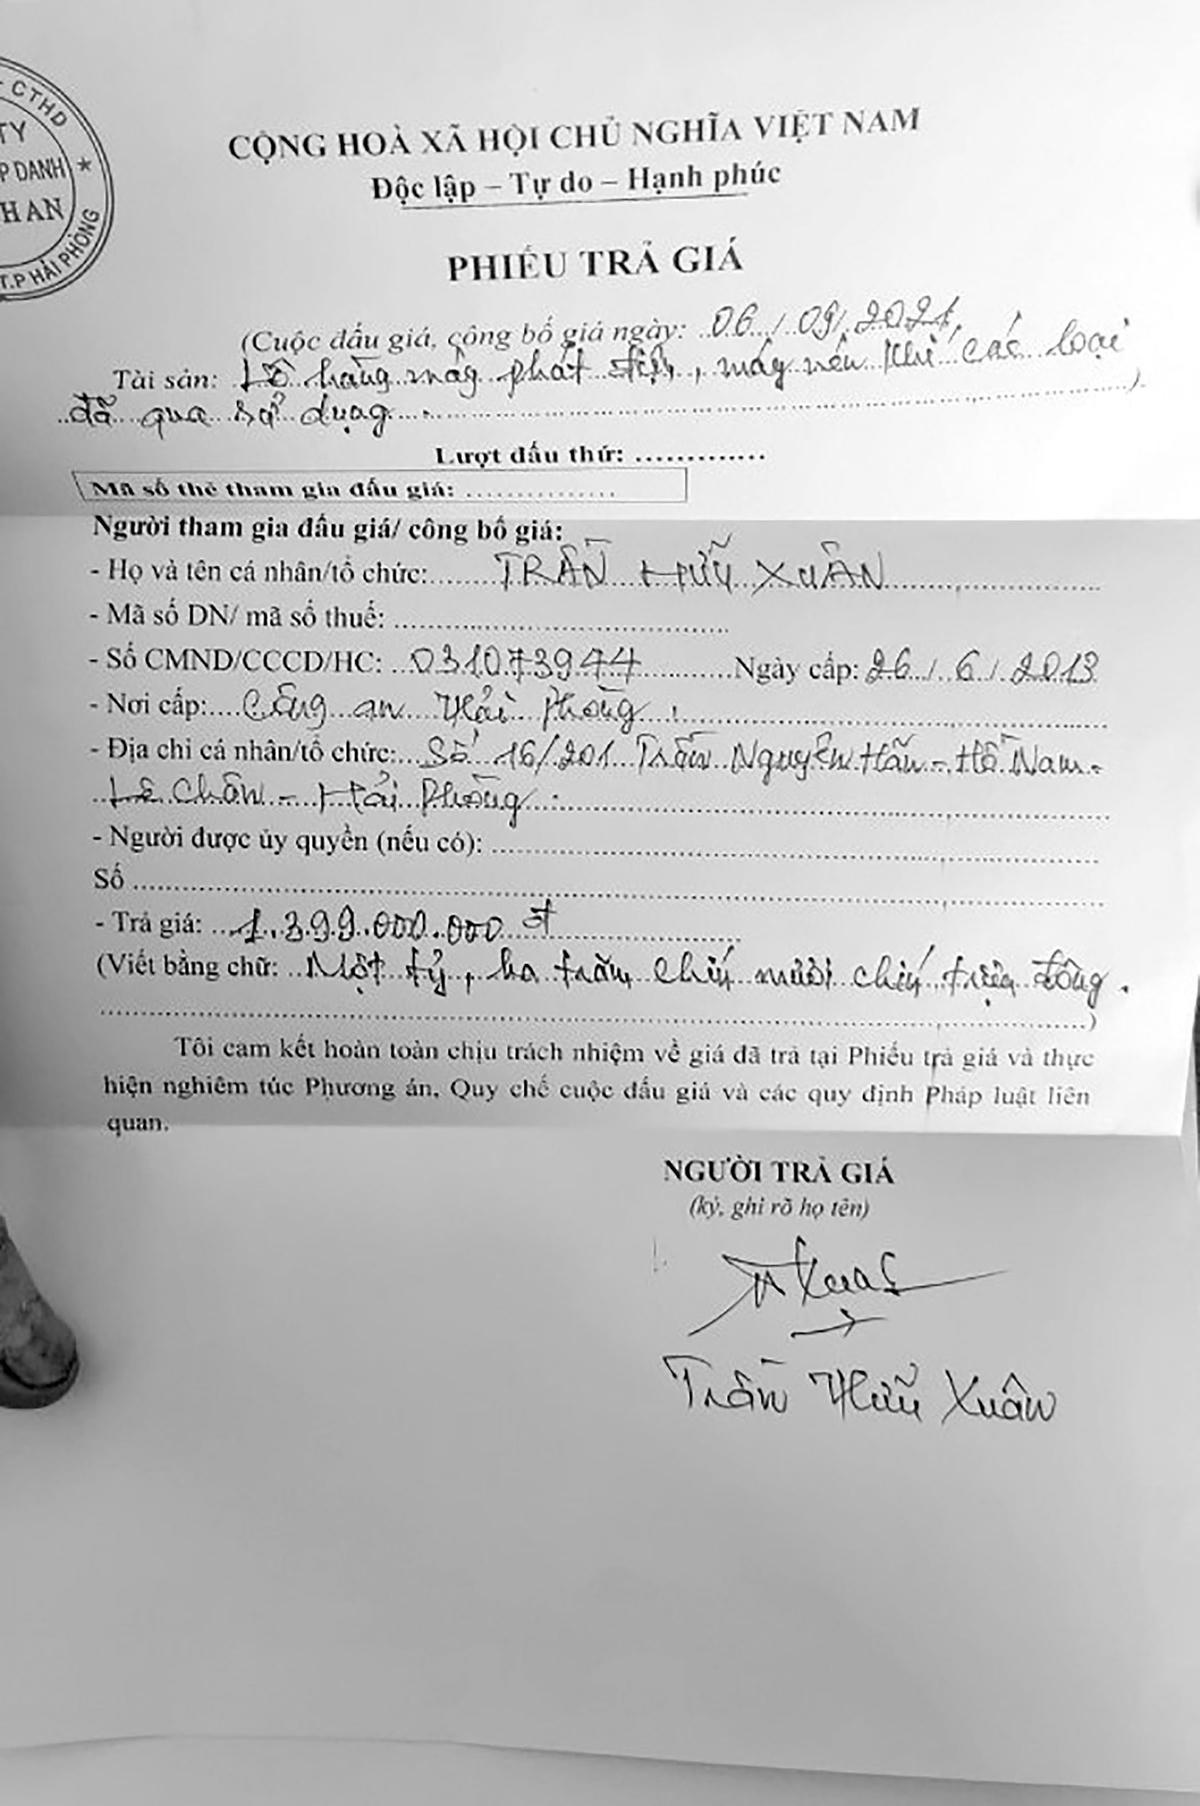 CTHD
TY
P DANH ★
H AN
T.P HẢI PHÒNG
CỘNG HOÀ XÃ HỘI CHỦ NGHĨA VIỆT NAM
Độc lập – Tự do – Hạnh phúc
PHIẾU TRẢ GIÁ
(Cuộc đấu giá, công bố giá ngày: 06/09/2021
Tài sản: Lô hàng máy phát điện, máy nén khí các loại
đã qua sử dụng ...............)
Lượt đấu thứ: .............
Mã số thẻ tham gia đấu giá: ...............
Người tham gia đấu giá/ công bố giá:
- Họ và tên cá nhân/tổ chức: TRẦN HỮU XUÂN
- Mã số DN/ mã số thuế: ...............
- Số CMND/CCCD/HC: 031073944 Ngày cấp: 26/6/2013
- Nơi cấp: Công an Hải Phòng.
- Địa chỉ cá nhân/tổ chức: Số 16/201 Trần Nguyên Hãn - Hồ Nam -
Lê Chân - Hải Phòng.
- Người được ủy quyền (nếu có): ...............
Số ...............
- Trả giá: 1.399.000.000 đ
(Viết bằng chữ: Một tỷ, ba trăm chín mươi chín triệu đồng.
...............)
Tôi cam kết hoàn toàn chịu trách nhiệm về giá đã trả tại Phiếu trả giá và thực
hiện nghiêm túc Phương án, Quy chế cuộc đấu giá và các quy định Pháp luật liên
quan.
NGƯỜI TRẢ GIÁ
(ký, ghi rõ họ tên)
Trần Hữu Xuân